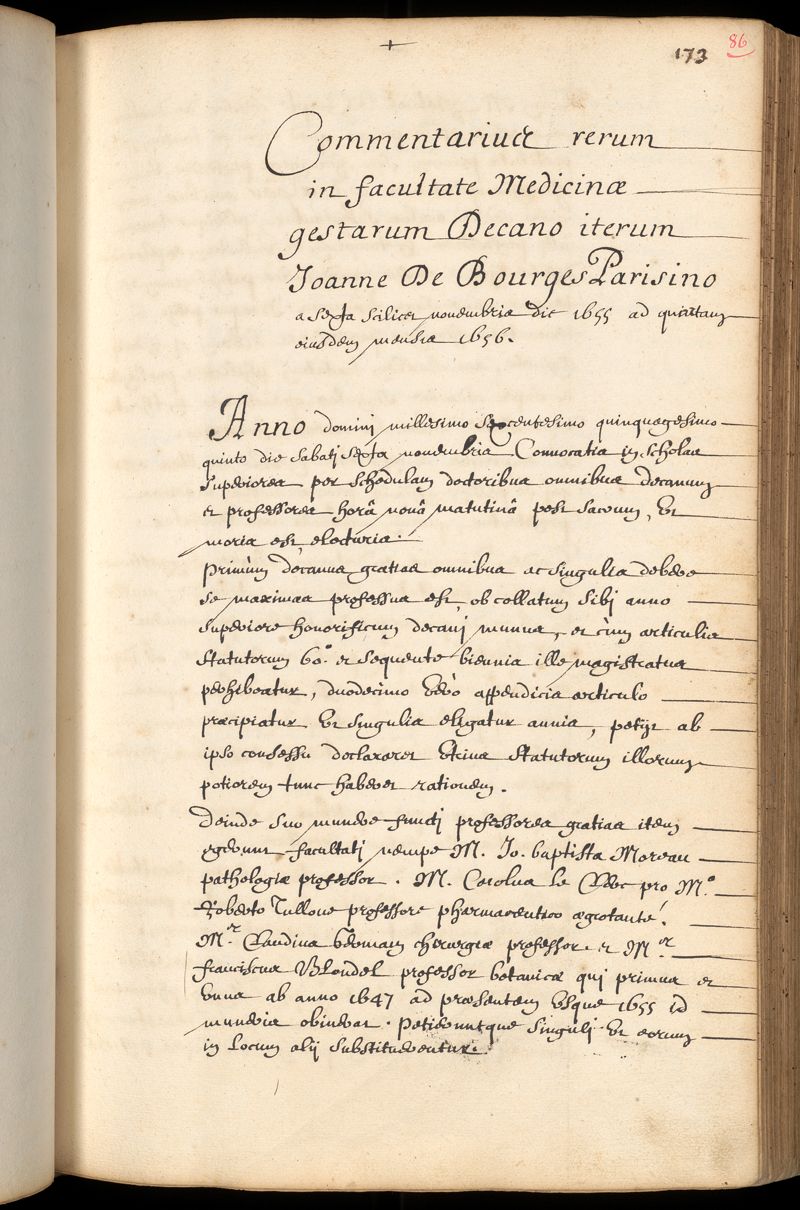 173
86
Commentarius rerum
in facultate Medicinæ
gestarum Decano iterum
Joanne De Bourges Parisino
a sexta scilicet novembris die 1655 ad quintam
eiusdem mensis 1656.
Anno domini millesimo sexcentesimo quinquagesimo
quinto die sabati sexta novembris. Convocatis in scholas
superiores per schedulam doctoribus omnibus decanum
et professores horâ nonâ matutinâ post sacrum, Ut
moris est, electuris.
primùm decanus gratias omnibus ac singulis debere
se maximas professus est, ob collatum sibj anno
superiore honorificum decanj munus, et cùm articulis
statutorum 60.° et sequente biennis ille magistratus
perhibeatur, duodecimo verò appendicis articulo
præcipiatur Ut singulis eligatur annis, petijt ab
ipso consessu declararet Utrius statutorum illorum
potiorem tunc haberet rationem.
deinde suo munere functj professores gratias item
egerunt facultatj nempe M. Jo. baptista Moreau
pathologiæ professor. M. Carolus le Clerc pro M.°
Roberto Tulloue professore pharmaceutico ægrotante.
M.r Claudius Germain chirurgiæ professor et M.r
franciscus Blondel professor botanicæ quj primus et
Unus ab anno 1647 ad præsentem Usque 1655 id
muneris obiverat. Petieruntque singulj Ut eorum
in locum alij substituerentur.